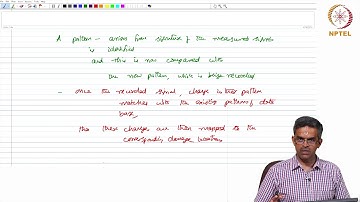 NPTEL
A pattern - arrives from signature of the measured signals
is identified
and this is now compared with
the new pattern, which is being recorded
- once the recorded signal, change in their pattern
matches with the existing pattern of data
base,
these changes are then mapped to the
corresponding damage locations